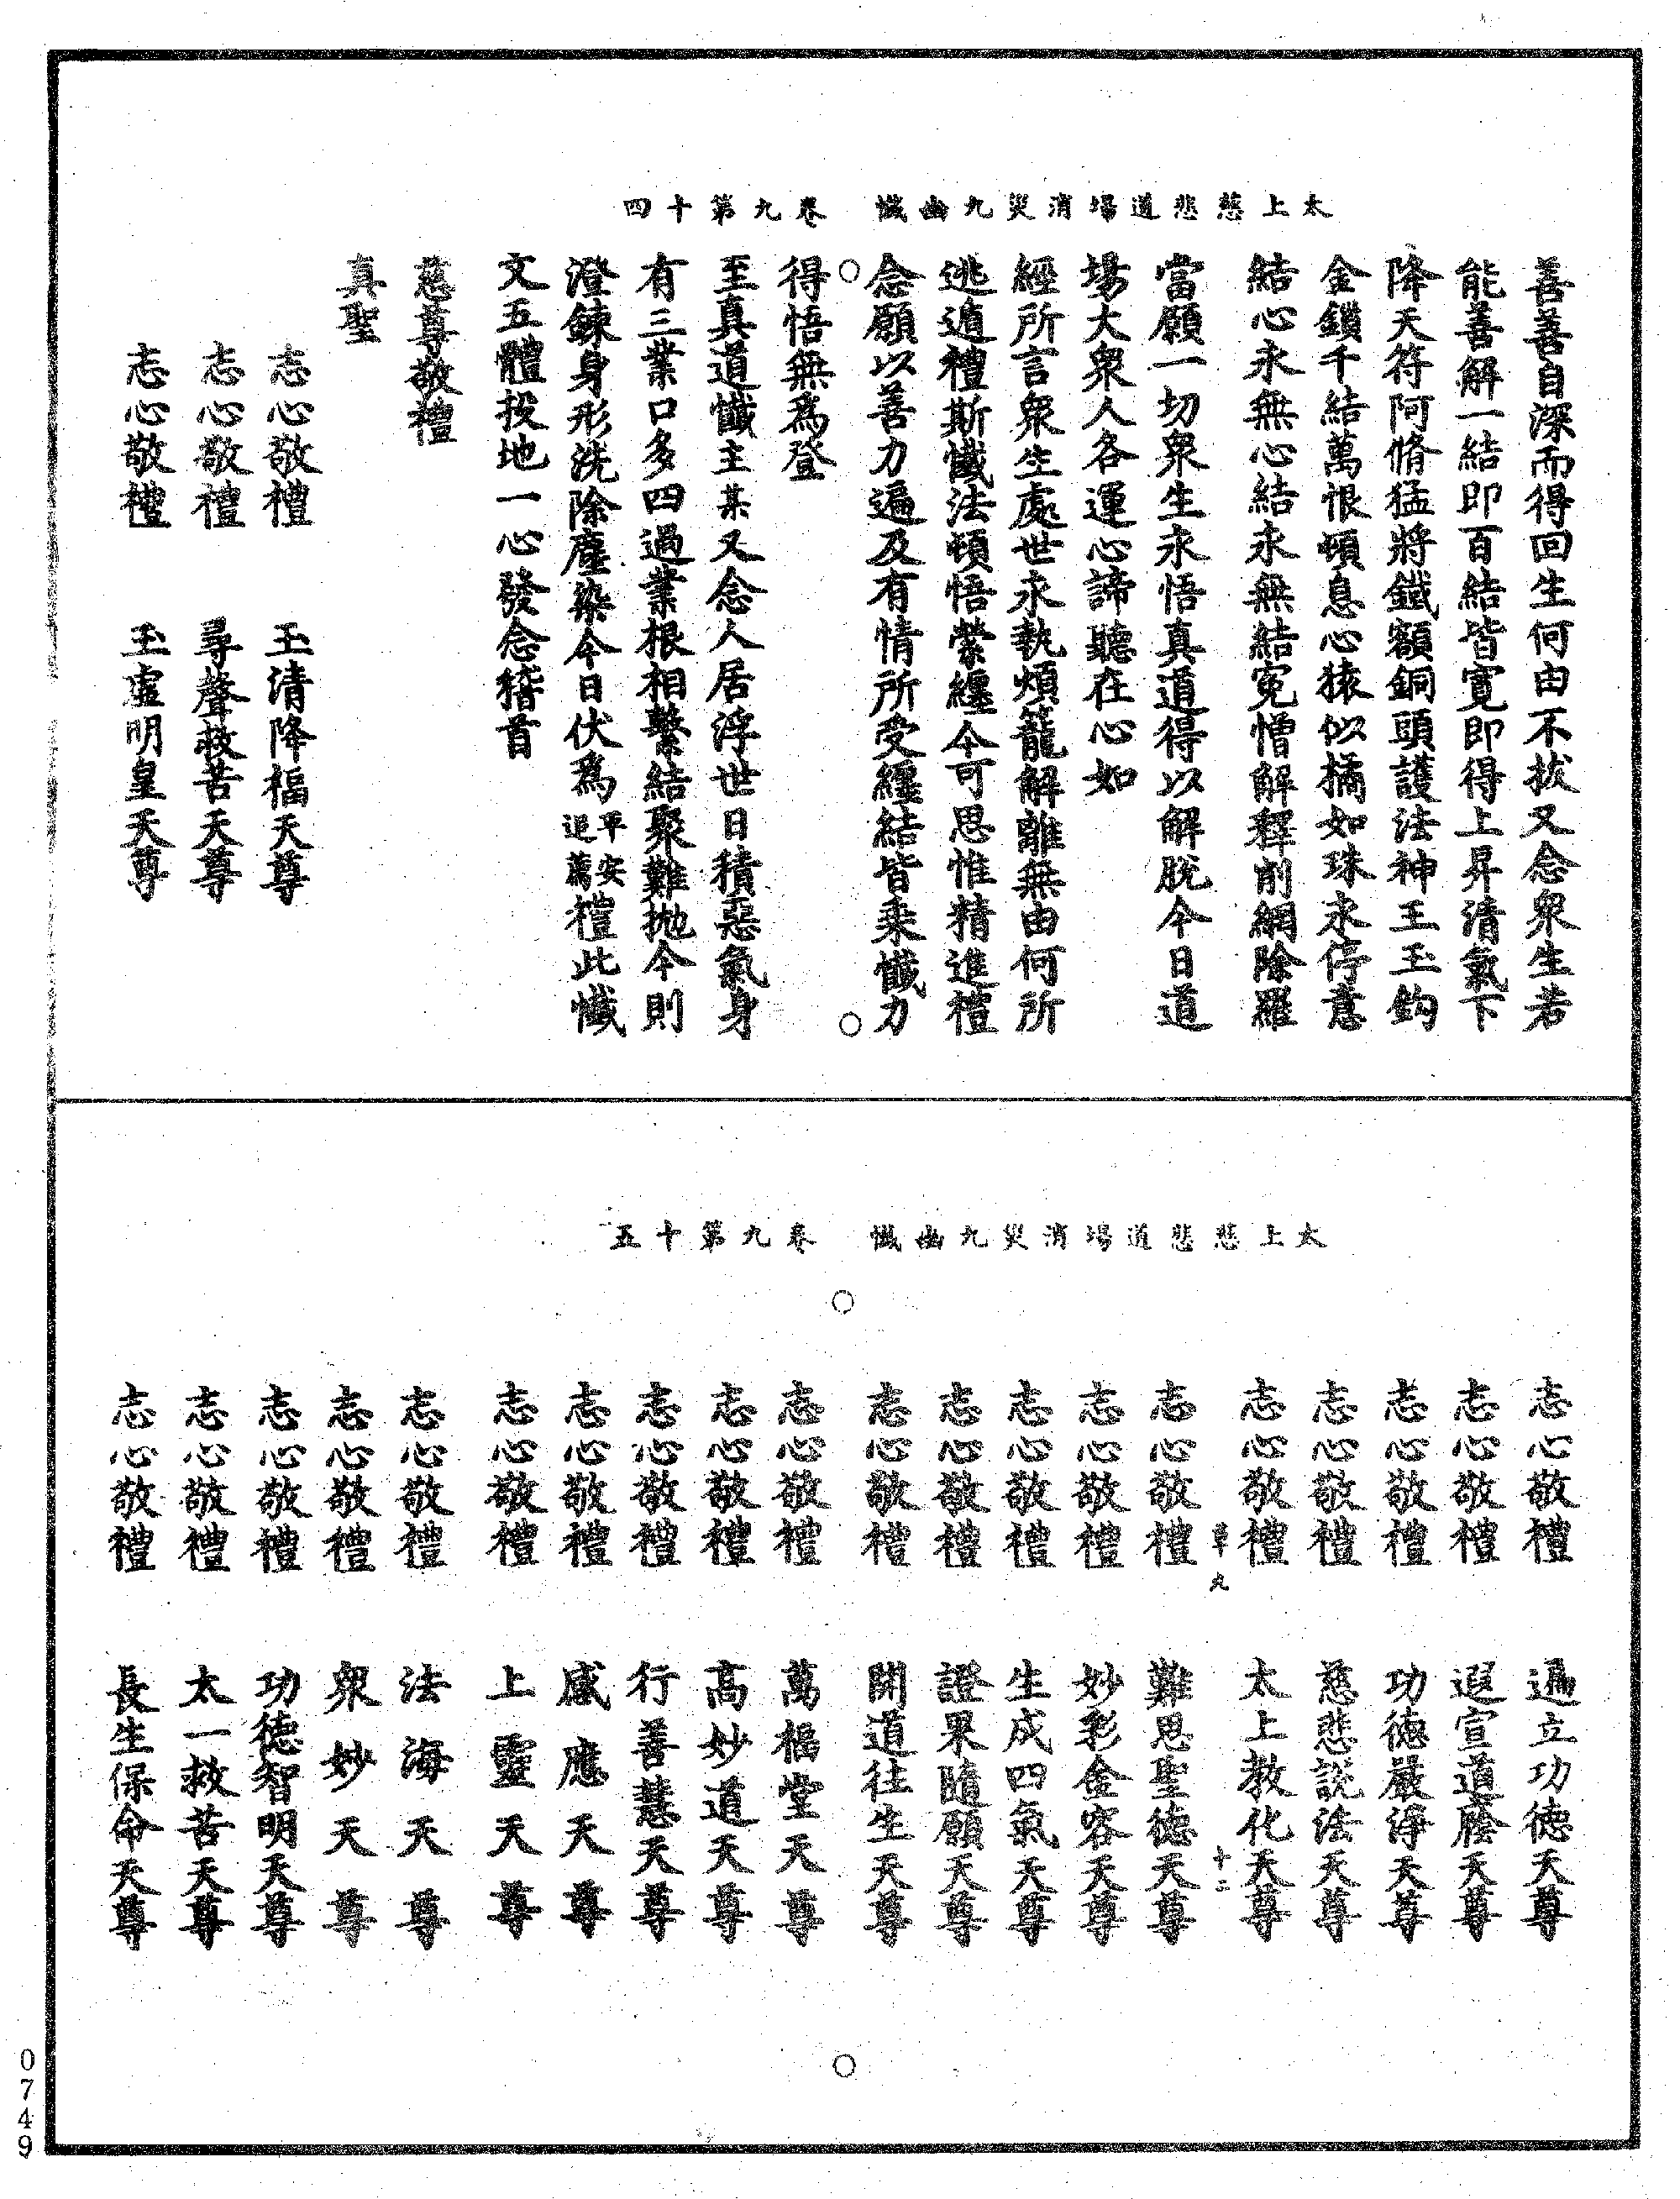 太上慈悲道場消災九幽懺　卷九第十四
善善自深而得回生何由不拔又念衆生若
能善解一結即百結皆寬即得上昇清氣下
降天符阿脩猛將鐵額銅頭護法神王玉鈎
金鎖千結萬恨頓息心猿似擒如珠永停意
結心永無心結永無結冤憎解釋削網除羅
當願一切衆生永悟真道得以解脫今日道
場大衆人各運心諦聽在心如
經所言衆生處世永執煩籠解離無由何所
逃遁禮斯懺法頓悟縈纏今可思惟精進禮
念願以善力遍及有情所受纏結皆乘懺力
得悟無爲登
至真道懺主某又念人居浮世日積惡氣身
有三業口多四過業根相繫結聚難抛今則
澄鍊身形洗除塵染今日伏爲平安追薦禮此懺
文五體投地一心發念稽首
慈尊敬禮
真聖
志心敬禮　玉清降福天尊
志心敬禮　尋聲救苦天尊
志心敬禮　玉虛明皇天尊
太上慈悲道場消災九幽懺　卷九第十五
志心敬禮　遍立功德天尊
志心敬禮　遐宣道廕天尊
志心敬禮　功德嚴淨天尊
志心敬禮　慈悲說法天尊
志心敬禮　太上教化天尊
草九　十二
志心敬禮　難思聖德天尊
志心敬禮　妙彩金容天尊
志心敬禮　生成四氣天尊
志心敬禮　證果隨願天尊
志心敬禮　開道往生天尊
志心敬禮　萬福堂天尊
志心敬禮　高妙道天尊
志心敬禮　行善慧天尊
志心敬禮　感應天尊
志心敬禮　上靈天尊
志心敬禮　法海天尊
志心敬禮　衆妙天尊
志心敬禮　功德智明天尊
志心敬禮　太一救苦天尊
志心敬禮　長生保命天尊
0749